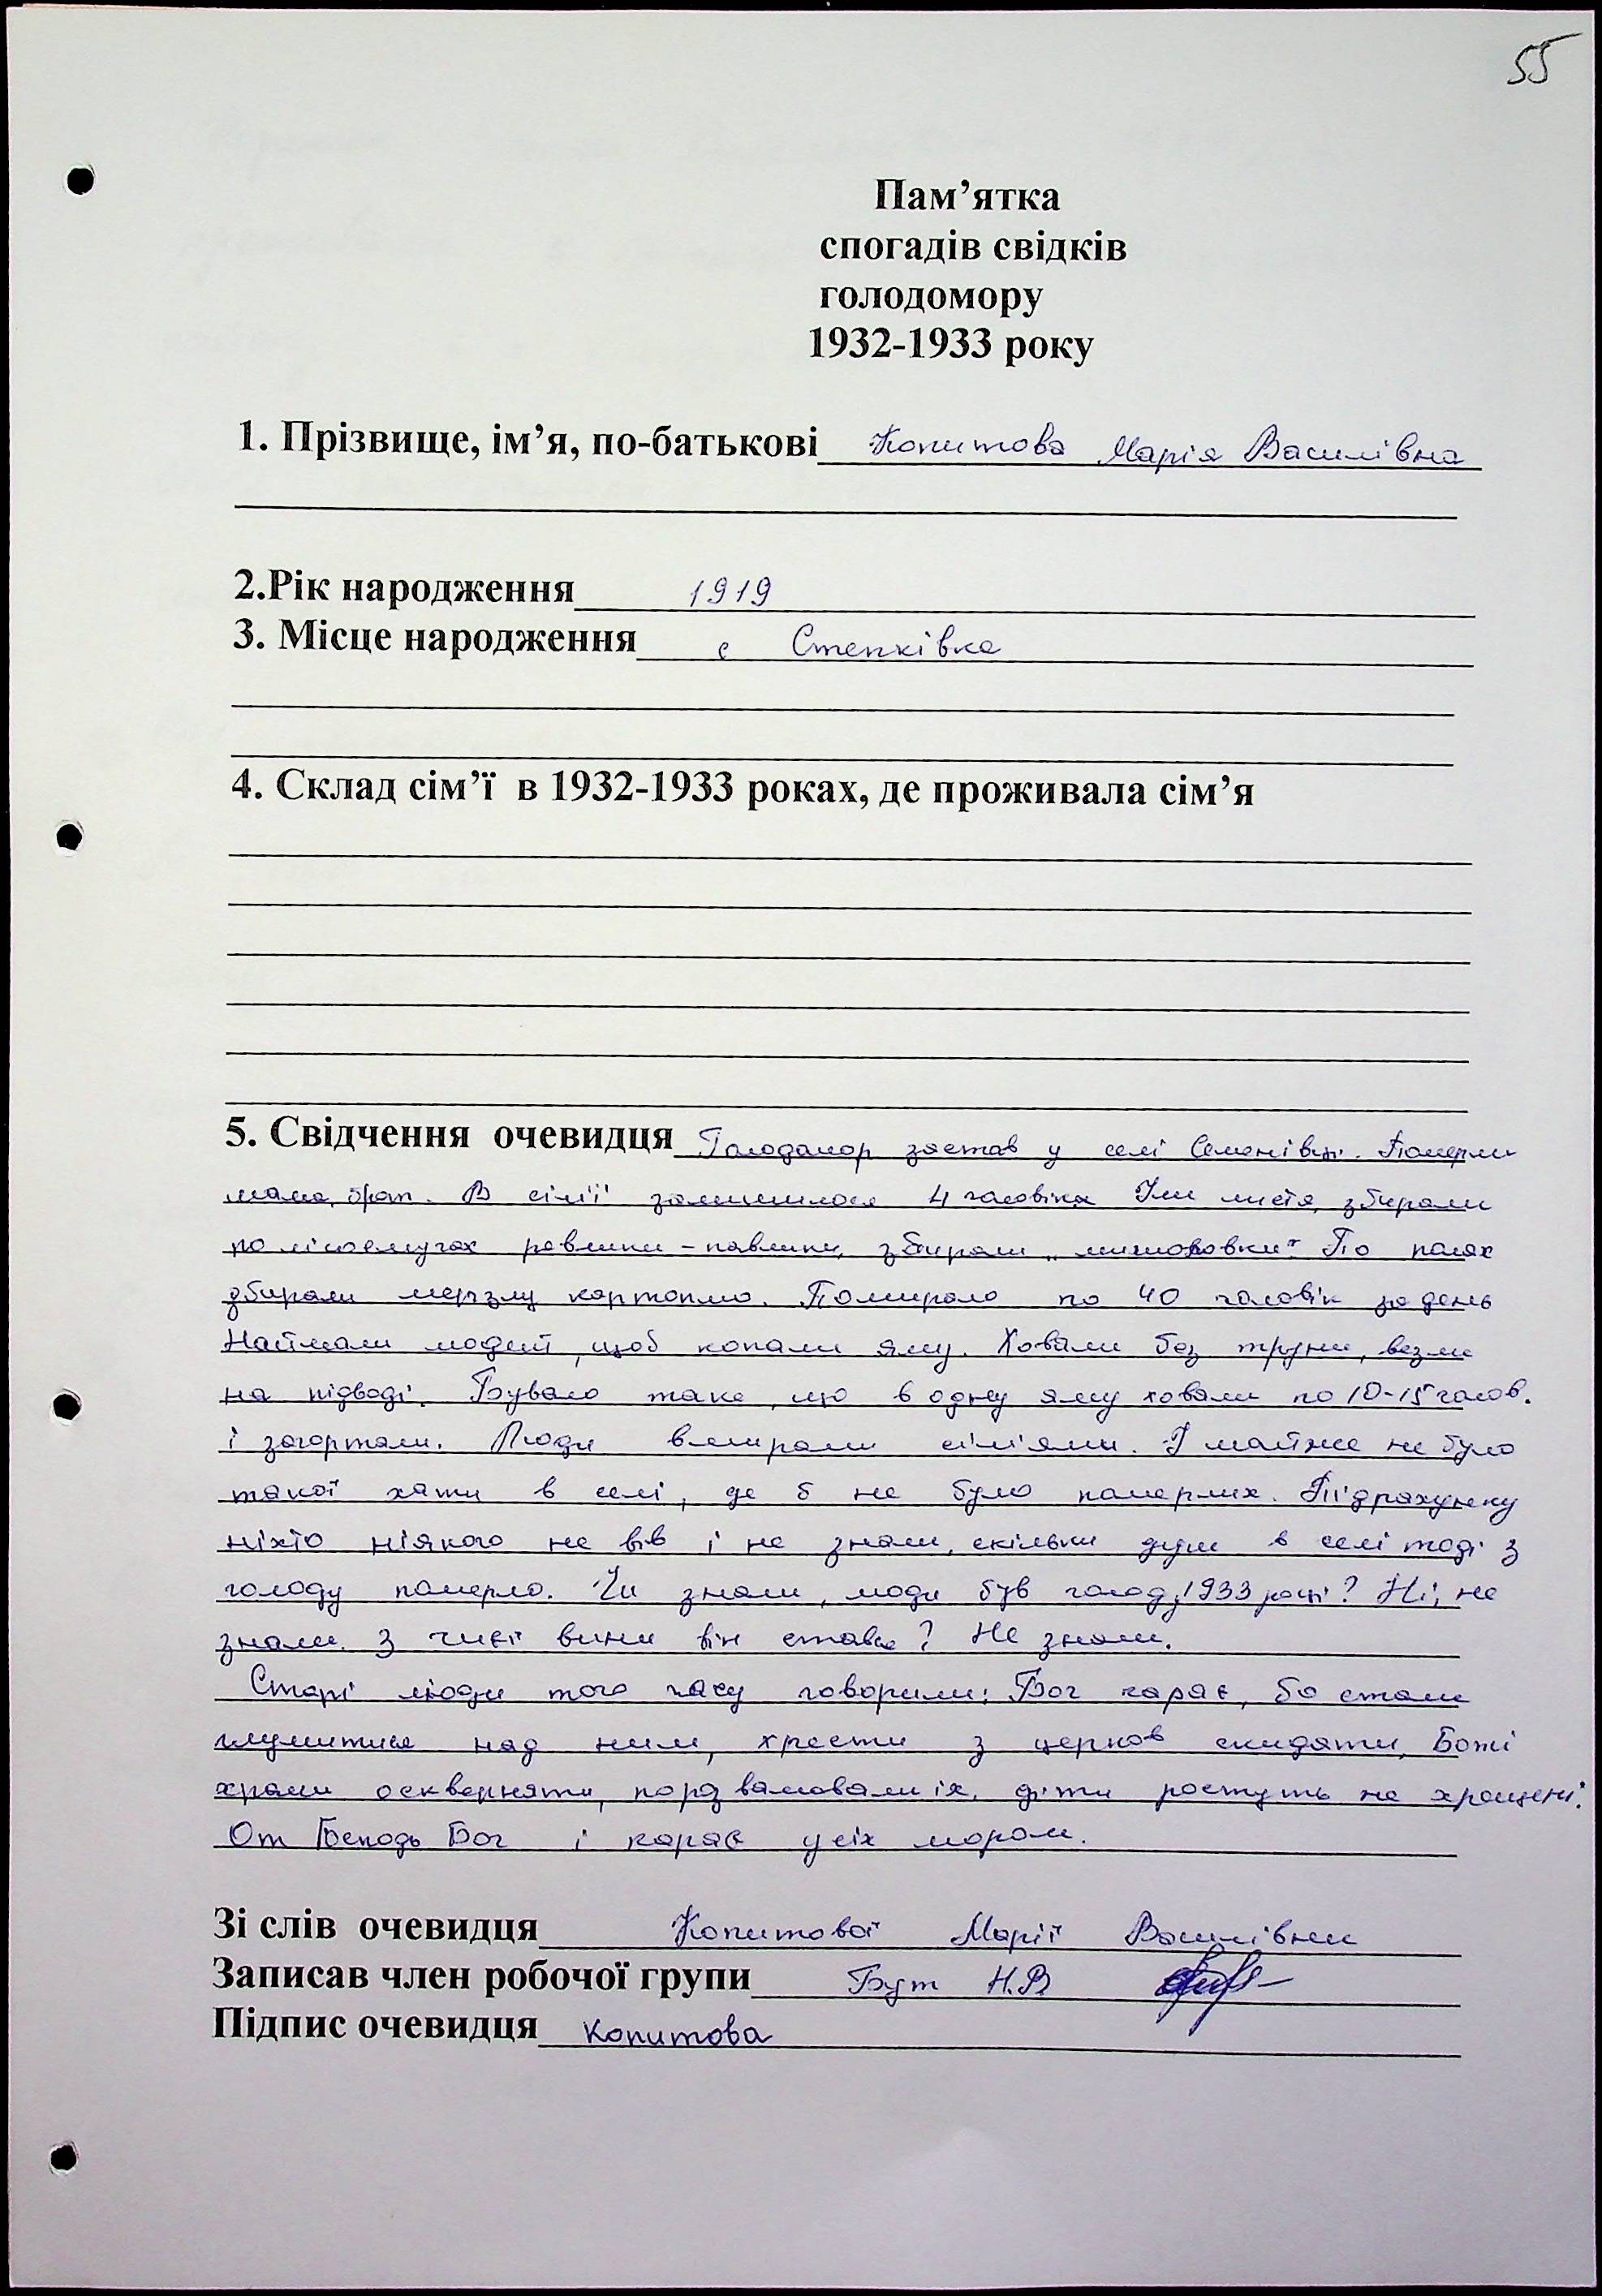 55
Пам’ятка
спогадів свідків
голодомору
1932-1933 року
1. Прізвище, ім’я, по-батькові Копитова Марія Василівна
2.Рік народження 1919
3. Місце народження с Степківка
4. Склад сім’ї в 1932-1933 роках, де проживала сім’я
5. Свідчення очевидця Голодомор застав у селі Семенівці. Померли
мама, брат. В сім'ї залишилося 4 чоловіка Їли листя, збирали
по лісосмугах равлики-павлики, збирали „ По полях
збирали мерзлу картоплю. Помирало по 40 чоловік за день
Наймали людей, щоб копали яму. Ховали без труни, везли
на підводі. Бувало таке, що в одну яму ховали по 10-15 чолов.
і загортали. Люди вмирали сім'ями. І майже не було
такої хати в селі, де б не було померлих. Підрахунку
ніхто ніякого не вів і не знали, скільки душ в селі тоді з
голоду померло. Чи знали, люди був голод у 1933 році? Ні, не
знали. З чиєї вини він стався? Не знали.
Старі люди того часу говорили: Бог карає, бо стали
глумитися над ним, хрести з церков скидати, Божі
храми оскверняти, порозвалювали їх, діти ростуть не хрещені.
От Господь Бог і карає усіх мором.
Зі слів очевидця Копитової Марії Василівни
Записав член робочої групи Бут Н.В
Підпис очевидця Копитова